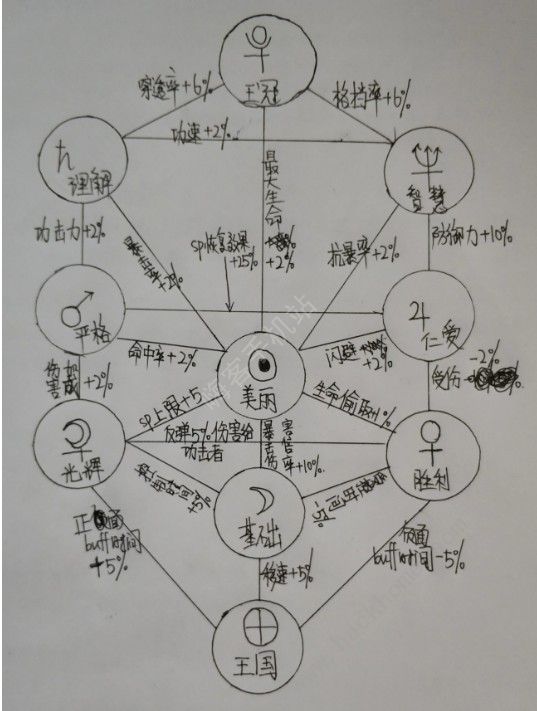 王冠
穿透率+6%
格挡率+6%
功速+2%
理解
智慧
最大生命
+2%
功击力+2%
暴击率+2%
sp恢复效果
+25%
抗暴率+2%
防御力+10%
严格
仁爱
命中率+2%
闪避
+2%
美丽
伤害加成
+2%
-2%
受伤
sp上限+5
生命偷取1%
反弹5%伤害给
功击者
暴击伤害倍率+10%
光辉
胜利
+5%
基础
正面
buff时间
+5%
负面
buff时间-5%
移速+5%
王国